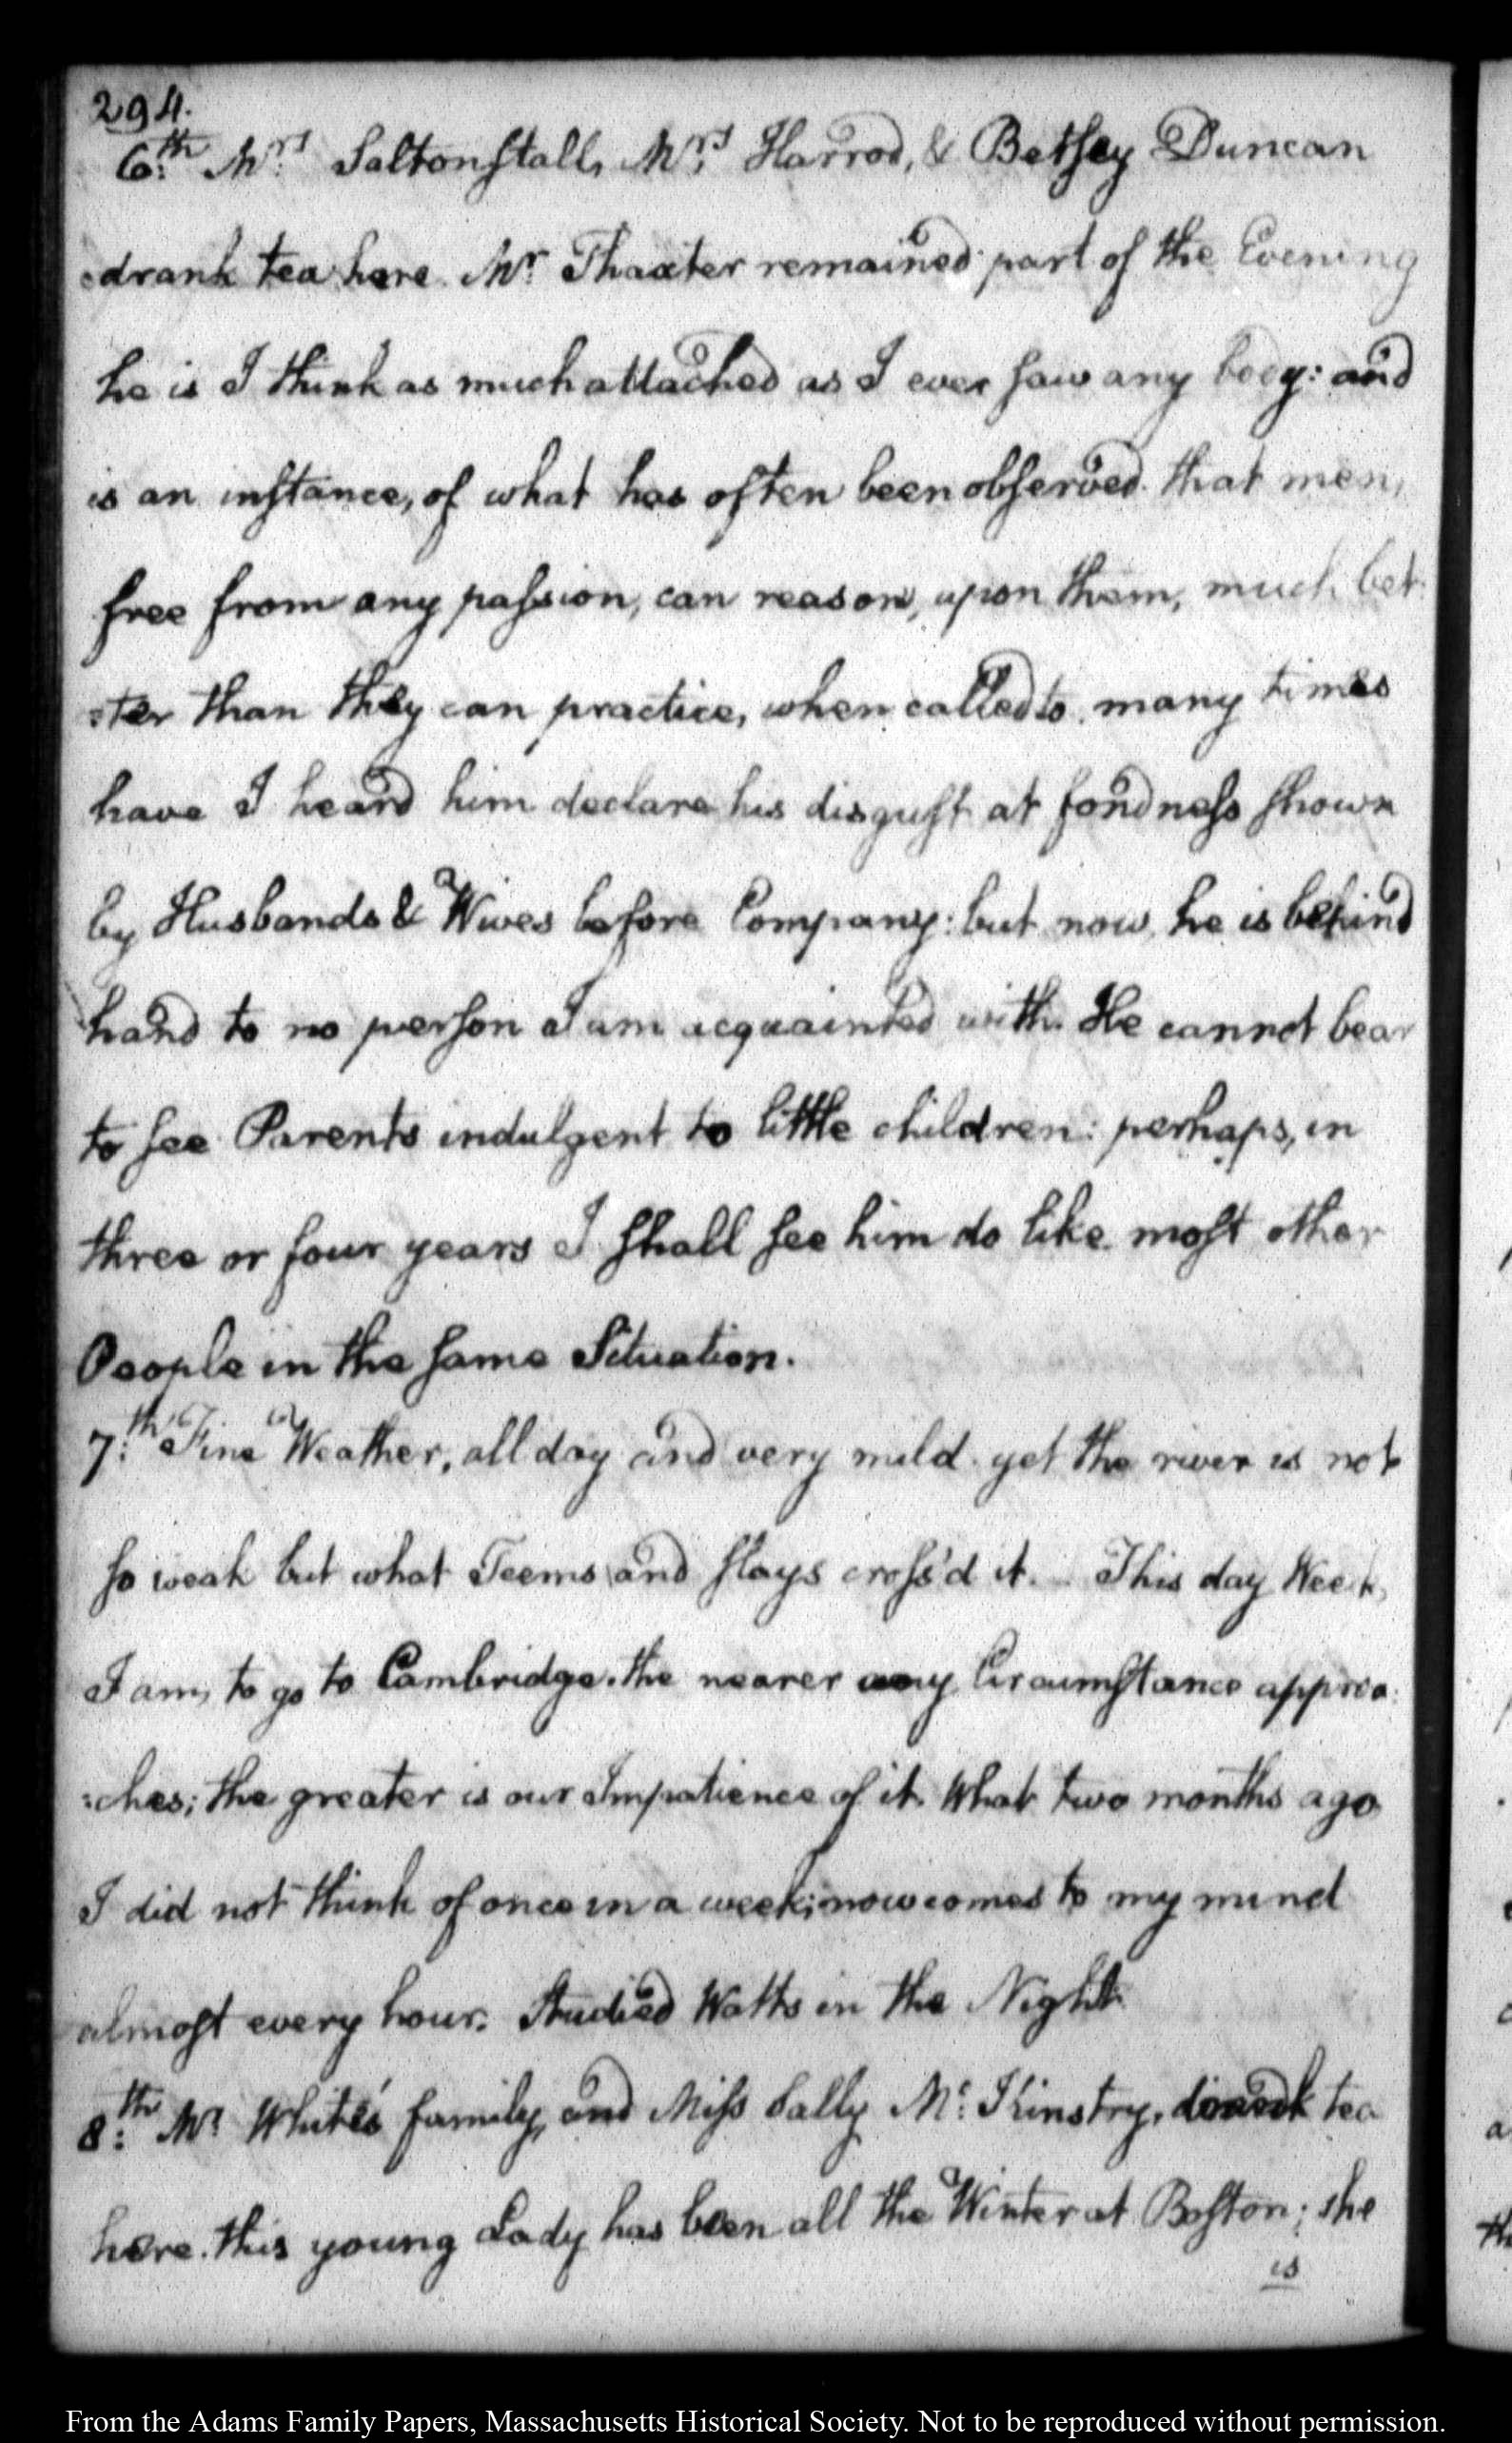 294.
6:th Mrs Saltonstall, Mrs Harrod, & Betsey Duncan
drank tea here. Mr Thaxter remained part of the Evening
he is I think as much attached as I ever saw any body: and
is an instance, of what has often been observed that men,
free from any passion, can reason, upon them, much bet:
:ter than they can practice, when called to. many times
have I heard him declare his disgust at fondness shown
by Husbands & Wives before Company: but now he is behind
hand to no person I am acquainted with. He cannot bear
to see Parents indulgent to little children: perhaps, in
three or four years I shall see him do like most other
People in the same Situation.
7:th Fine Weather, all day and very mild. yet the river is not
so weak but what Teems and slays cross'd it. — This day Week,
I am, to go to Cambridge. the nearer any Circumstance approa:
:ches; the greater is our Impatience of it. What two months ago
I did not think of once in a week; now comes to my mind
almost every hour. Studied Watts in the Night.
8:th Mr White's family, and Miss Sally Mc: Kinstry, drank tea
here. this young Lady has been all the Winter at Boston; she
is
From the Adams Family Papers, Massachusetts Historical Society. Not to be reproduced without permission.